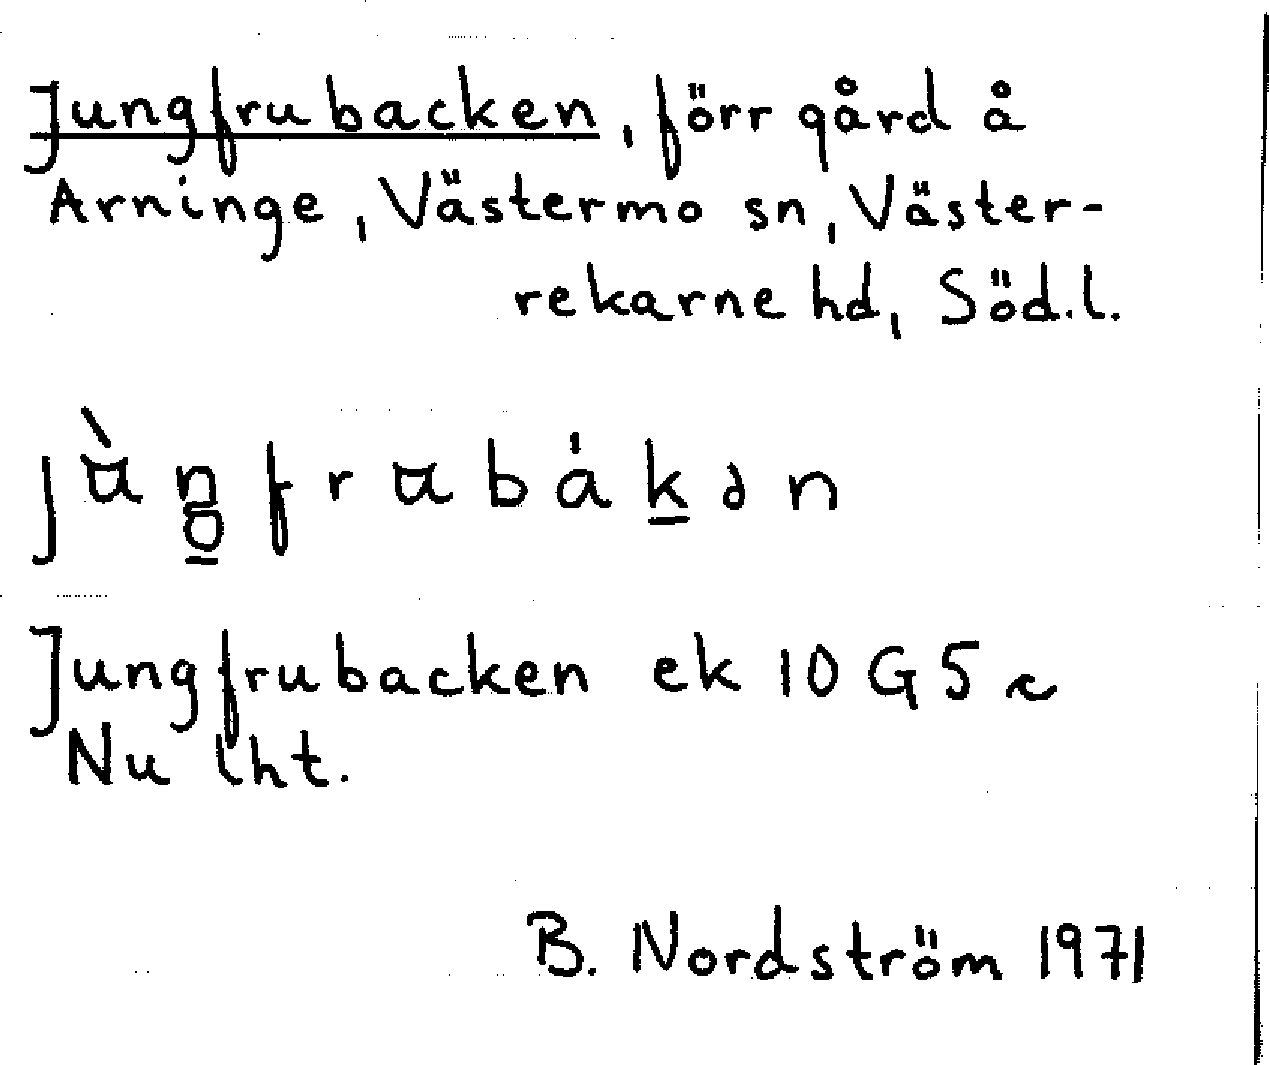 Jungfrubacken, förr gård å
Arninge, Västermo sn, Väster-
rekarne hd, Söd.l.
Jungfrubacken ek 10 G 5 c
Nu lht.
B. Nordström 1971